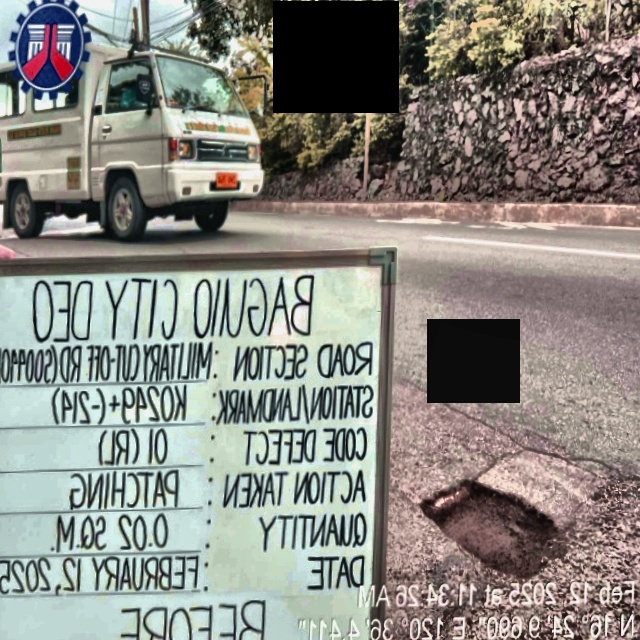 BAGUIO CITY DEO
ROAD SECTION : MILITARY CUT-OFF RD(S00440
STATION/LANDMARK: K0249+(-214)
CODE DEFECT : 01 (RL)
ACTION TAKEN : PATCHING
QUANTITY : 0.02 SQ.M.
DATE : FEBRUARY 12, 2025
BEFORE
Feb 12, 2025 at 11:34:26 AM
N 16° 24' 9.690", E 120° 36' 4.411"